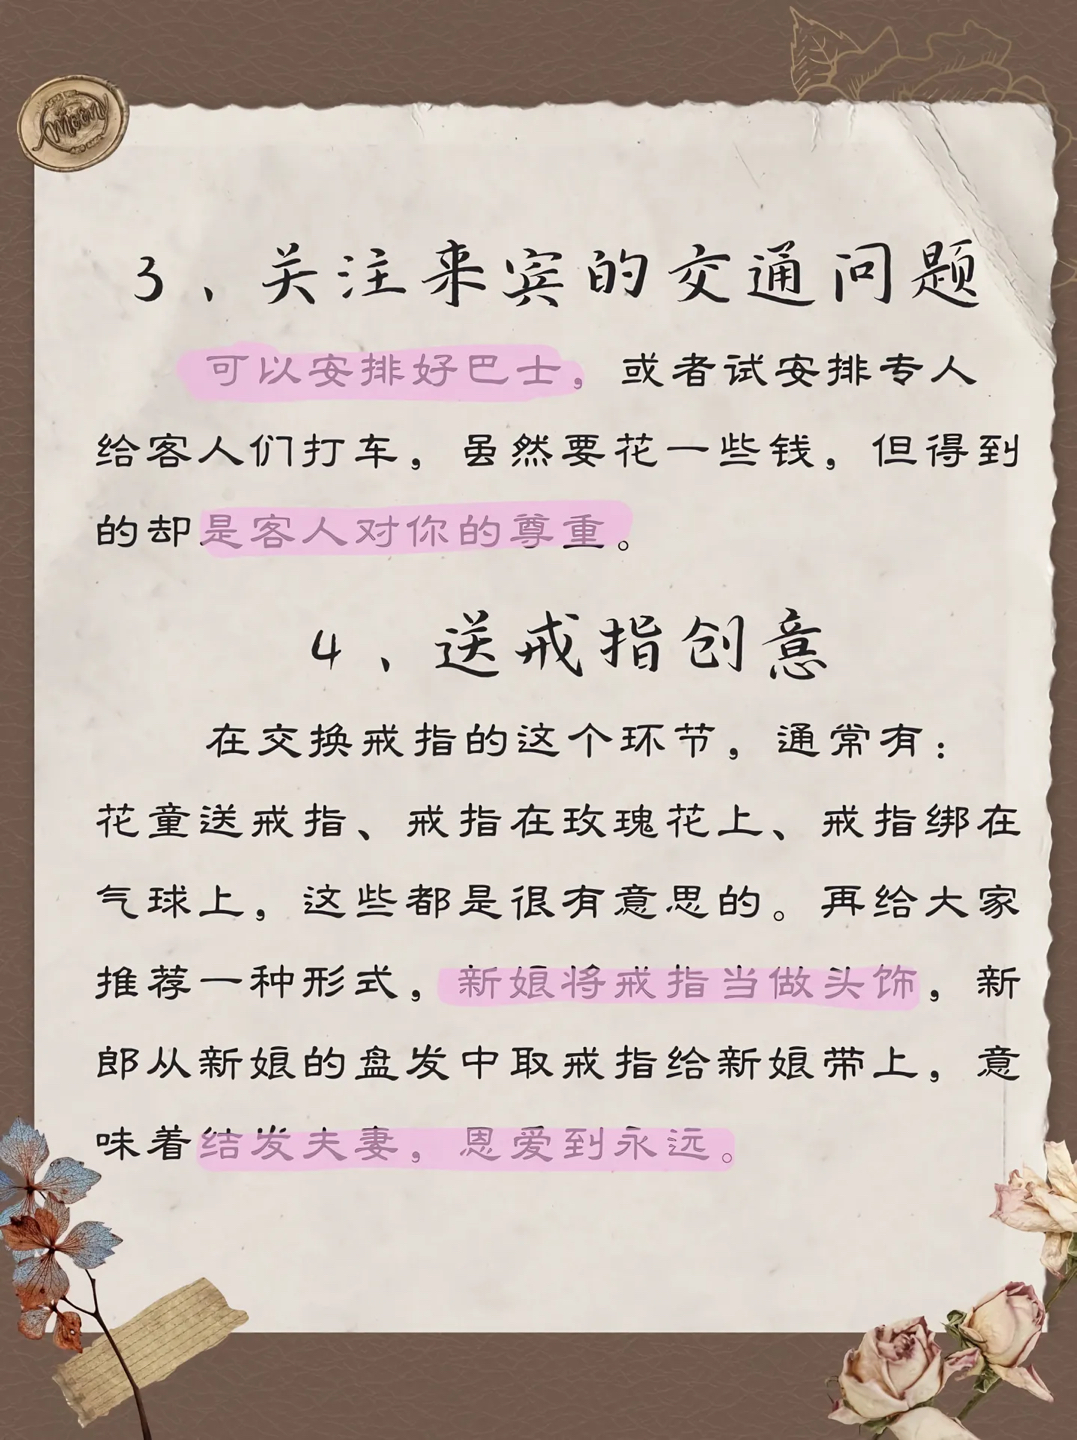 moon
3、关注来宾的交通问题
可以安排好巴士，或者试安排专人
给客人们打车，虽然要花一些钱，但得到
的却是客人对你的尊重。
4、送戒指创意
在交换戒指的这个环节，通常有：
花童送戒指、戒指在玫瑰花上、戒指绑在
气球上，这些都是很有意思的。再给大家
推荐一种形式，新娘将戒指当做头饰，新
郎从新娘的盘发中取戒指给新娘带上，意
味着结发夫妻，恩爱到永远。